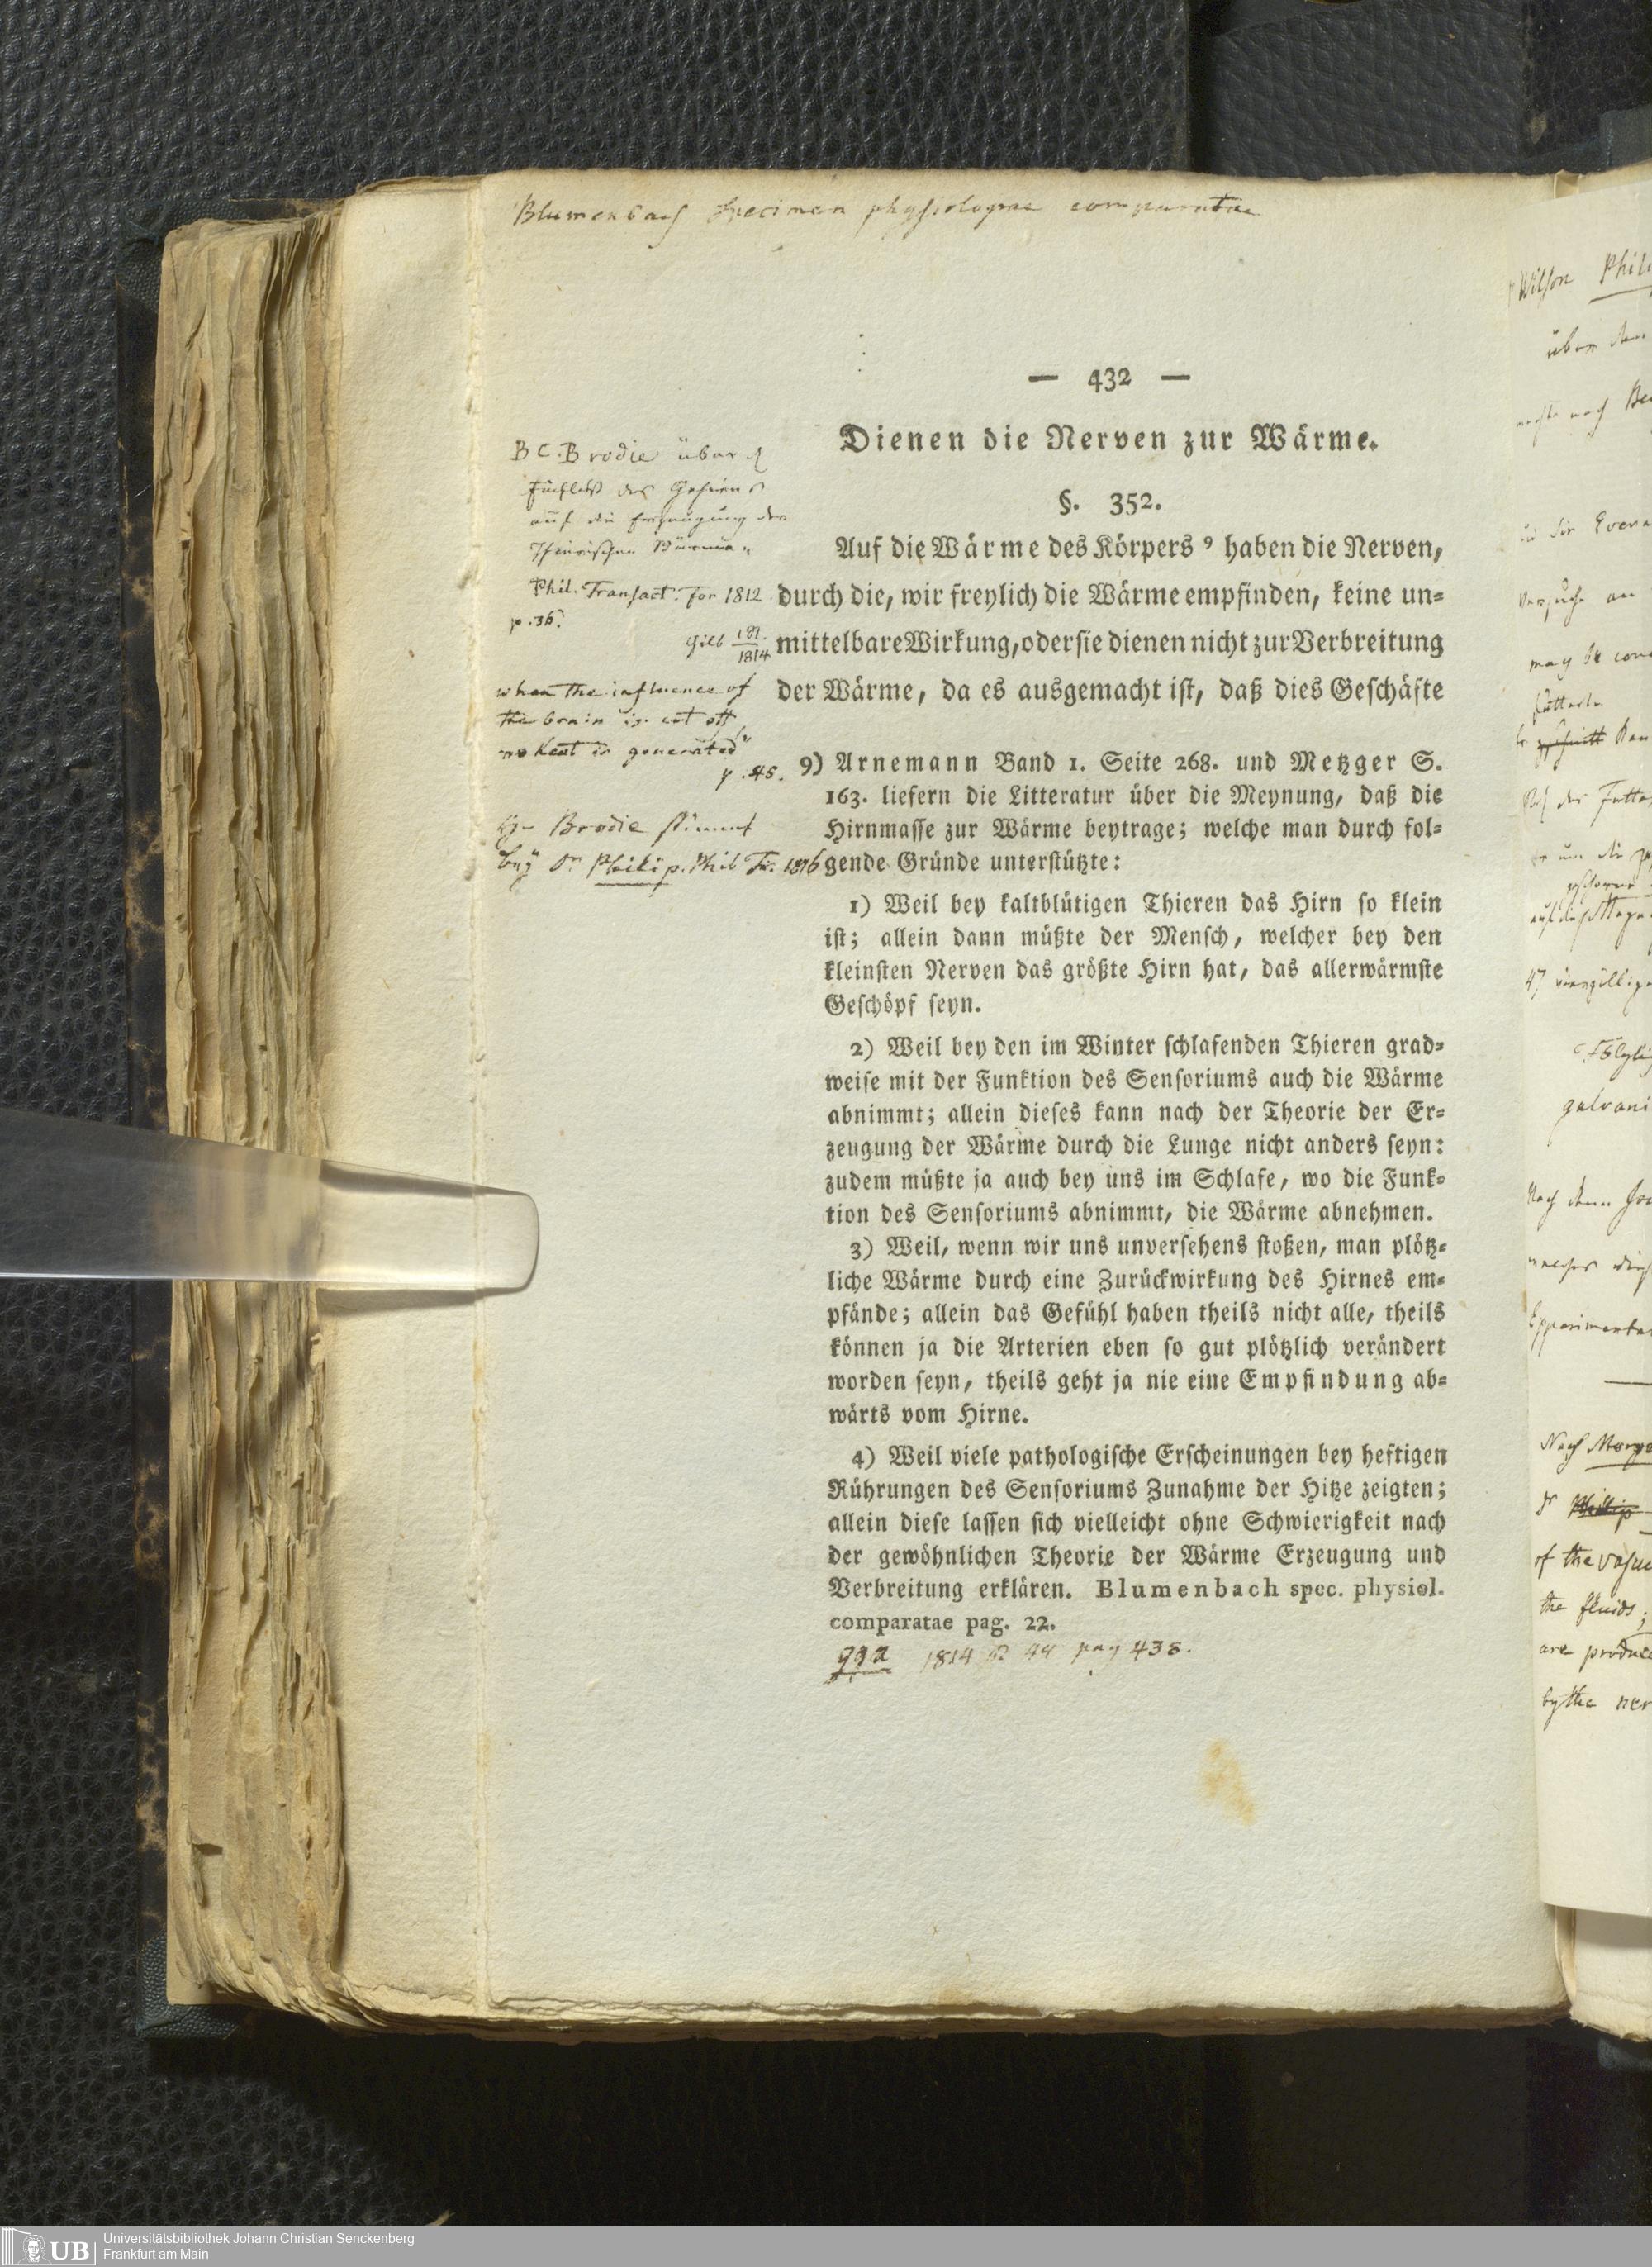 Blumenbach Specimen physiologiae comparatae
— 432 —
Dienen die Nerven zur Wärme.
§. 352.
Auf die Wärme des Körpers ⁹ haben die Nerven,
durch die, wir freylich die Wärme empfinden, keine un⸗
mittelbare Wirkung, oder ſie dienen nicht zur Verbreitung
der Wärme, da es ausgemacht iſt, daß dies Geſchäfte
9) Arnemann Band 1. Seite 268. und Metzger S.
163. liefern die Litteratur über die Meynung, daß die
Hirnmaſſe zur Wärme beytrage; welche man durch fol⸗
gende Gründe unterſtützte:
1) Weil bey kaltblütigen Thieren das Hirn ſo klein
iſt; allein dann müßte der Menſch, welcher bey den
kleinſten Nerven das größte Hirn hat, das allerwärmſte
Geſchöpf ſeyn.
2) Weil bey den im Winter ſchlafenden Thieren grad⸗
weiſe mit der Funktion des Senſoriums auch die Wärme
abnimmt; allein dieſes kann nach der Theorie der Er⸗
zeugung der Wärme durch die Lunge nicht anders ſeyn:
zudem müßte ja auch bey uns im Schlafe, wo die Funk⸗
tion des Senſoriums abnimmt, die Wärme abnehmen.
3) Weil, wenn wir uns unverſehens ſtoßen, man plötz⸗
liche Wärme durch eine Zurückwirkung des Hirnes em⸗
pfände; allein das Gefühl haben theils nicht alle, theils
können ja die Arterien eben ſo gut plötzlich verändert
worden ſeyn, theils geht ja nie eine Empfindung ab⸗
wärts vom Hirne.
4) Weil viele pathologiſche Erſcheinungen bey heftigen
Rührungen des Senſoriums Zunahme der Hitze zeigten;
allein dieſe laſſen ſich vielleicht ohne Schwierigkeit nach
der gewöhnlichen Theorie der Wärme Erzeugung und
Verbreitung erklären. Blumenbach spec. physiol.
comparatae pag. 22.
1814 pag 438.
B C. Brodie über d
Einfluß des Gehirns
auf die Erzeugung der
Thierischen Wärme.
Phil. Transact. for 1812
p. 36.
Gilb
1814
when the influence of
the brain is cut off
no heat is generated"
p. 45.
Brodie stimmt
bey Dr Philip. Phil Tr. 1816
Wilson Phil
über den
nach
Versuche an
may be con
galvani
Nach
Experimenta
Nach
Dr Philip
of the
the fluids;
are produce
by the ner
UB
Universitätsbibliothek Johann Christian Senckenberg
Frankfurt am Main